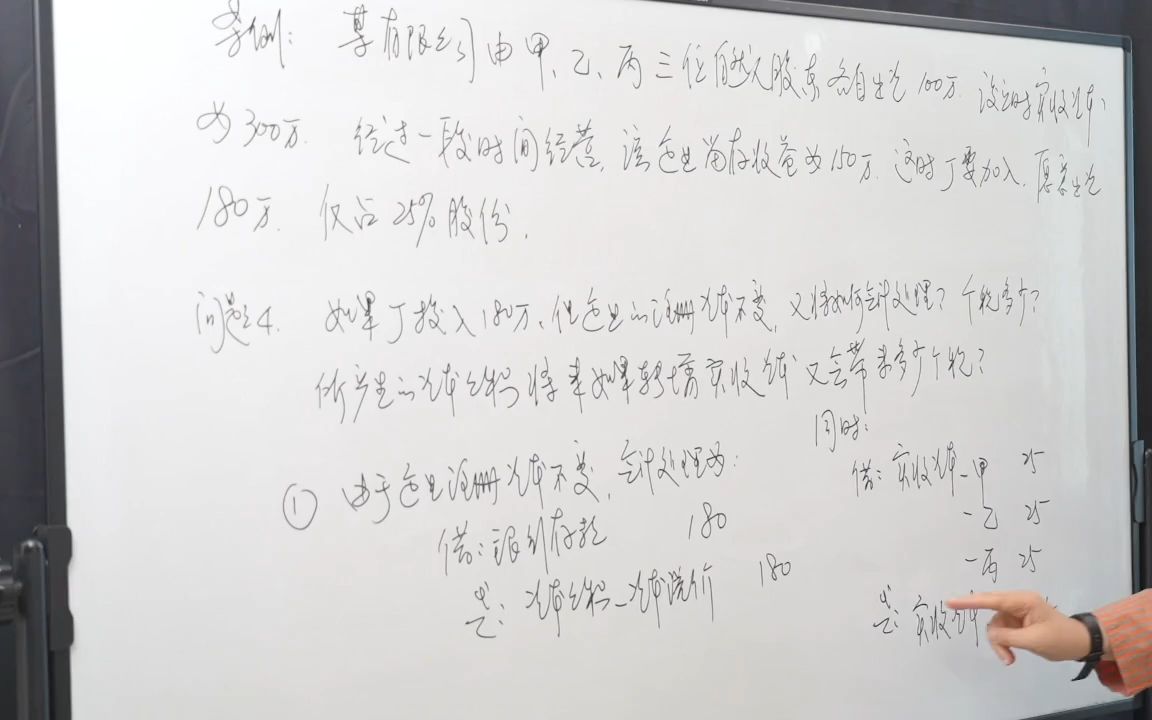 案例: 某有限公司由甲、乙、丙三位自然人股东各自出资100万. 设立时实收资本
为300万. 经过一段时间经营, 该企业留存收益为150万. 这时丁要加入, 愿意出资
180万. 仅占25%股份.
问题4. 如果丁投入180万, 但企业的注册资本不变, 又将如何会计处理? 个税多少?
所产生的资本公积将来如果转增实收资本又会带来多少个税?
① 由于企业注册资本不变, 会计处理为:
借: 银行存款 180
贷: 资本公积-资本溢价 180
同时:
借: 实收资本-甲 25
-乙 25
-丙 25
贷: 实收资本